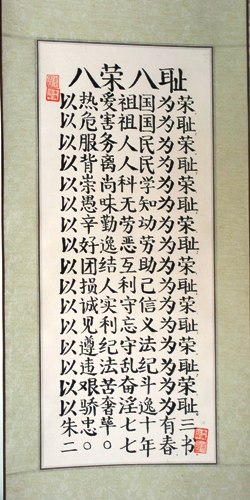 八荣八耻
以热爱祖国为荣
以危害祖国为耻
以服务人民为荣
以背离人民为耻
以崇尚科学为荣
以愚昧无知为耻
以辛勤劳动为荣
以好逸恶劳为耻
以团结互助为荣
以损人利己为耻
以诚实守信为荣
以见利忘义为耻
以遵纪守法为荣
以违法乱纪为耻
以艰苦奋斗为荣
以骄奢淫逸为耻
朱忠七十有三
二〇〇七年春书